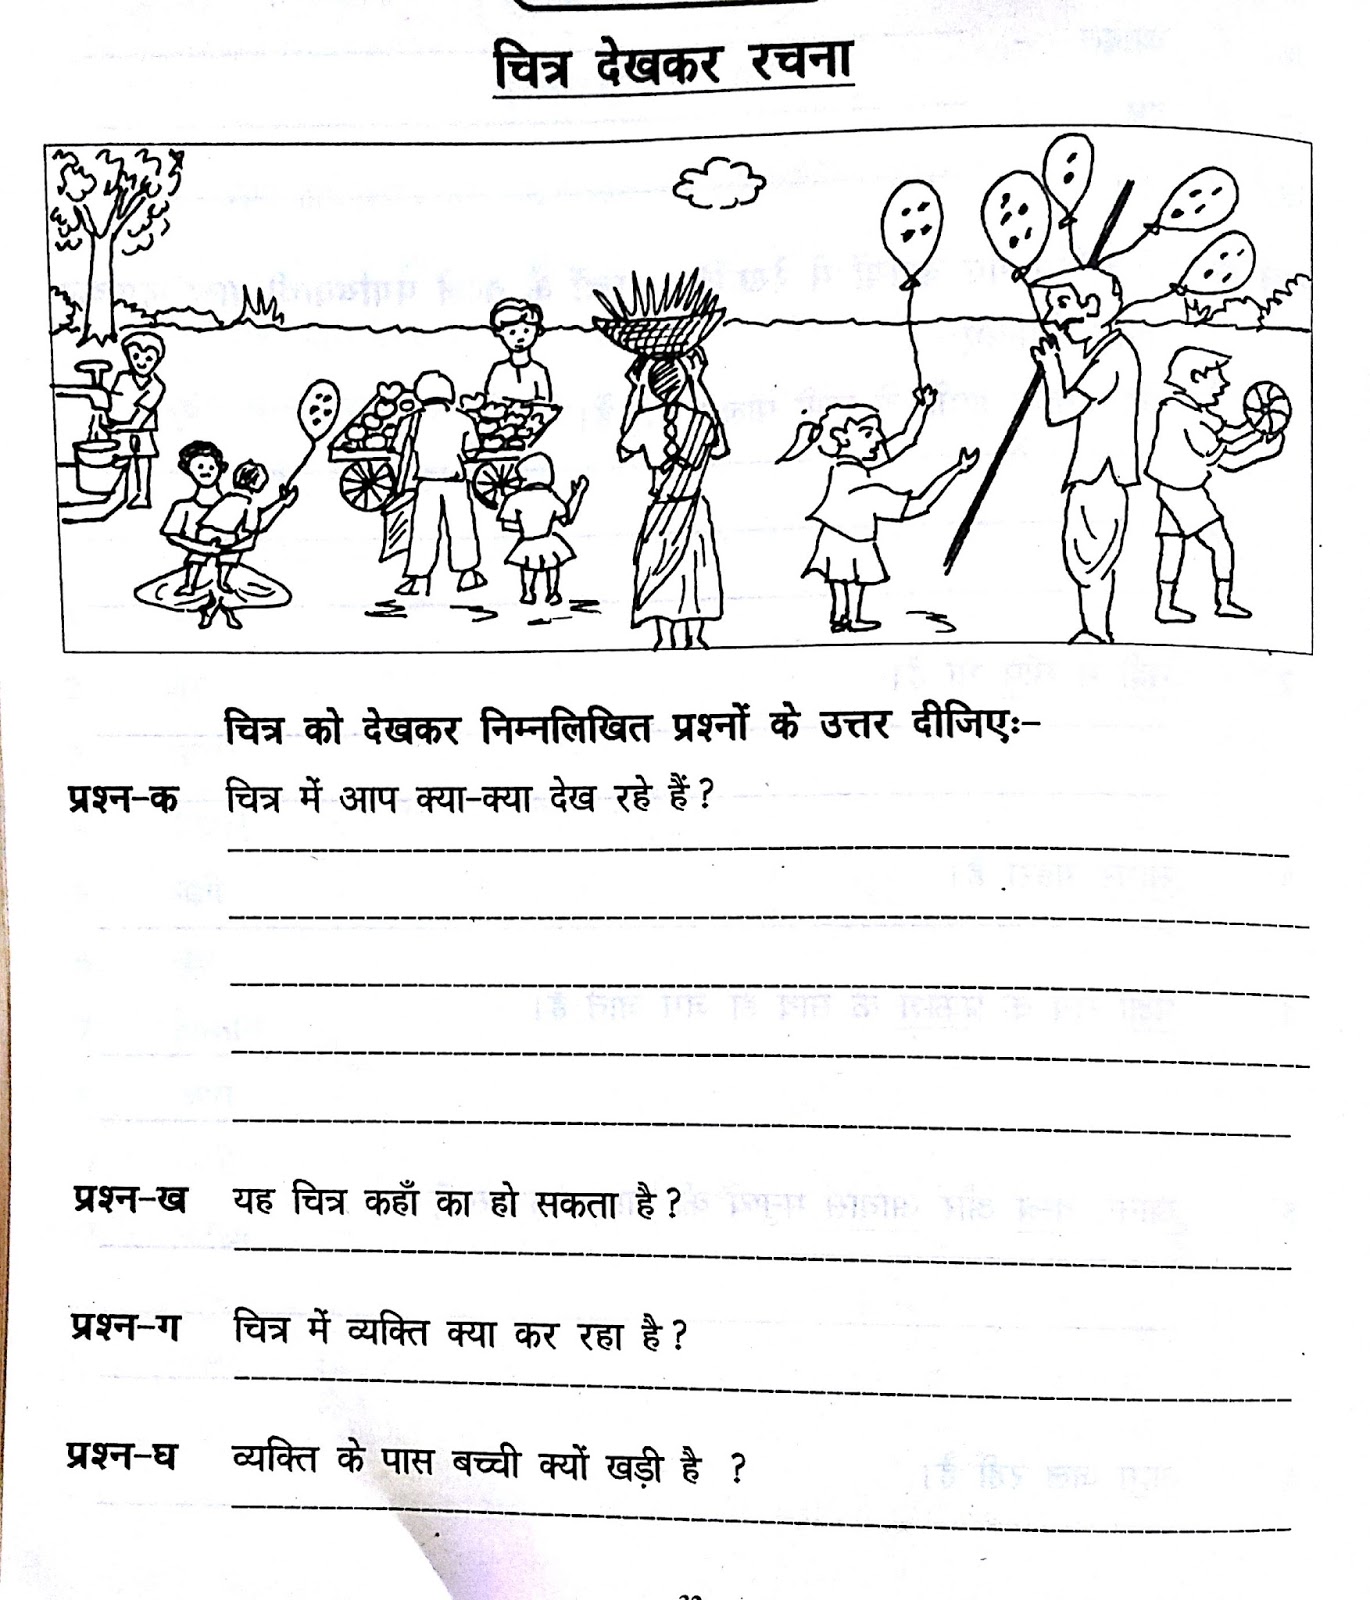 चित्र देखकर रचना
चित्र को देखकर निम्नलिखित प्रश्नों के उत्तर दीजिए:-
प्रश्न-क चित्र में आप क्या-क्या देख रहे हैं?
प्रश्न-ख यह चित्र कहाँ का हो सकता है?
प्रश्न-ग चित्र में व्यक्ति क्या कर रहा है?
प्रश्न-घ व्यक्ति के पास बच्ची क्यों खड़ी है ?